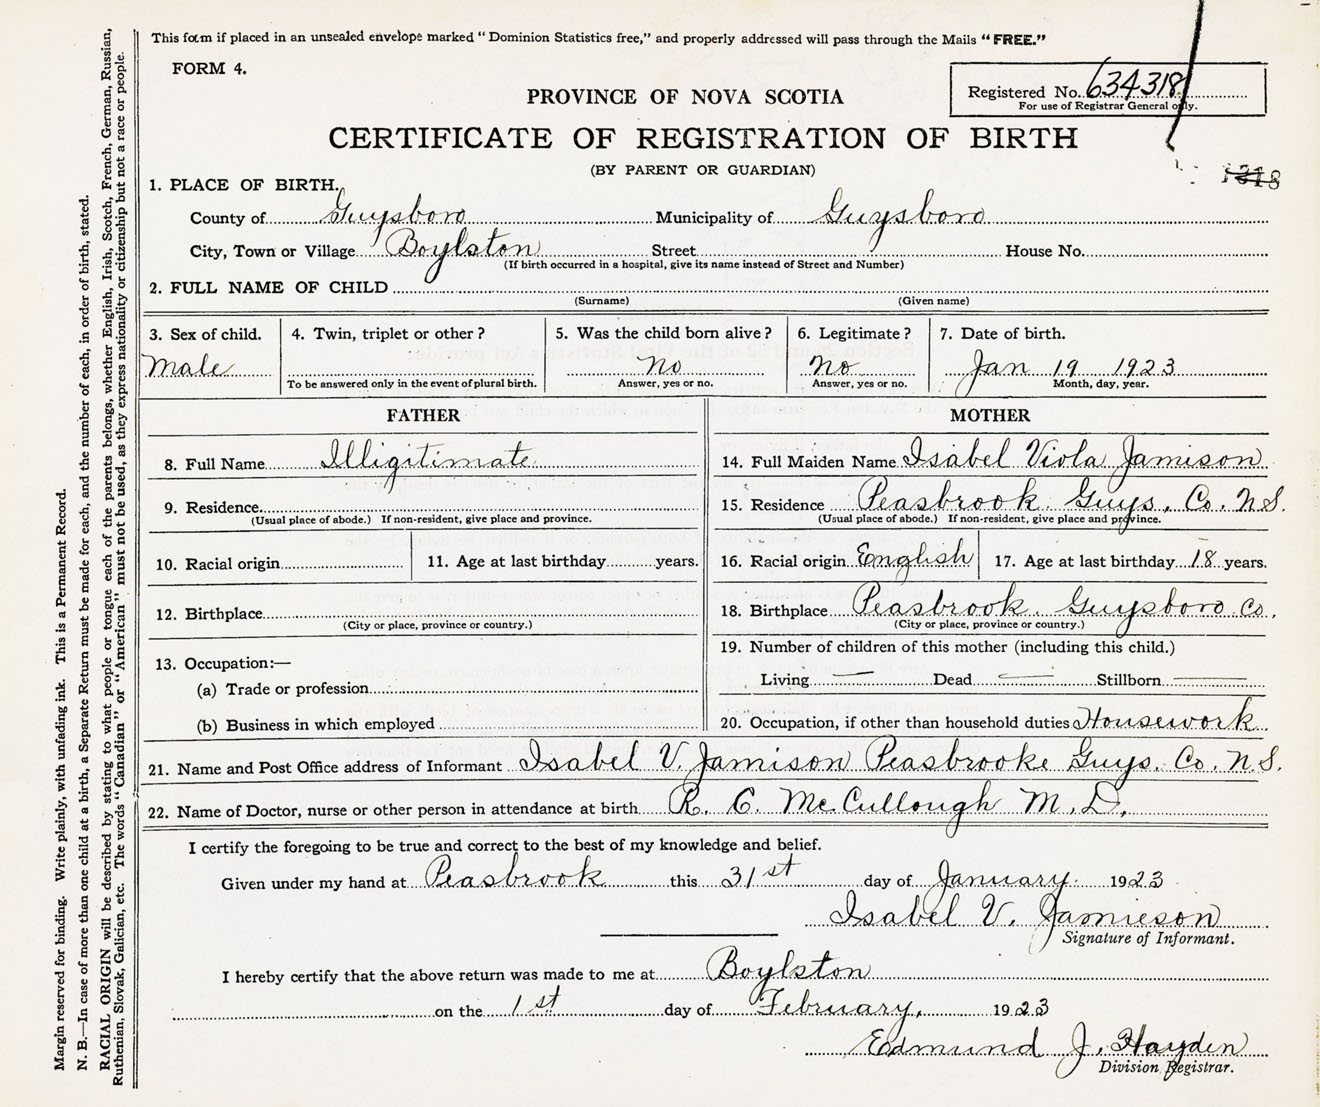 This form if placed in an unsealed envelope marked "Dominion Statistics free," and properly addressed will pass through the Mails "FREE."
FORM 4.
Registered No. 634318
For use of Registrar General only.
PROVINCE OF NOVA SCOTIA
CERTIFICATE OF REGISTRATION OF BIRTH
(BY PARENT OR GUARDIAN)
1. PLACE OF BIRTH.
County of Guysboro Municipality of Guysboro
City, Town or Village Boylston Street House No.
(If birth occurred in a hospital, give its name instead of Street and Number)
2. FULL NAME OF CHILD
(Surname) (Given name)
3. Sex of child. 4. Twin, triplet or other? 5. Was the child born alive? 6. Legitimate? 7. Date of birth.
Male No No Jan 19 1923
To be answered only in the event of plural birth. Answer, yes or no. Answer, yes or no. Month, day, year.
FATHER MOTHER
8. Full Name Illigitimate 14. Full Maiden Name Isabel Viola Jamison
9. Residence. 15. Residence Peasbrook Guys. Co. N.S.
(Usual place of abode.) If non-resident, give place and province. (Usual place of abode.) If non-resident, give place and province.
10. Racial origin 11. Age at last birthday years. 16. Racial origin English 17. Age at last birthday 18 years.
12. Birthplace 18. Birthplace Peasbrook. Guysboro Co.
(City or place, province or country.) (City or place, province or country.)
13. Occupation:— 19. Number of children of this mother (including this child.)
(a) Trade or profession Living — Dead — Stillborn —
(b) Business in which employed 20. Occupation, if other than household duties Housework
21. Name and Post Office address of Informant Isabel V. Jamison Peasbrooke Guys. Co. N.S.
22. Name of Doctor, nurse or other person in attendance at birth R. C. McCullough M.D.
I certify the foregoing to be true and correct to the best of my knowledge and belief.
Given under my hand at Peasbrook this 31st day of January 1923
Isabel V. Jamieson
Signature of Informant.
I hereby certify that the above return was made to me at Boylston
on the 1st day of February, 1923
Edmund J. Hayden
Division Registrar.
Margin reserved for binding. Write plainly, with unfading ink. This is a Permanent Record.
N. B.—In case of more than one child at a birth, a Separate Return must be made for each, and the number of each, in order of birth, stated.
RACIAL ORIGIN will be described by stating to what people or tongue each of the parents belongs, whether English, Irish, Scotch, French, German, Russian,
Ruthenian, Slovak, Galician, etc. The words "Canadian" or "American" must not be used, as they express nationality or citizenship but not a race or people.